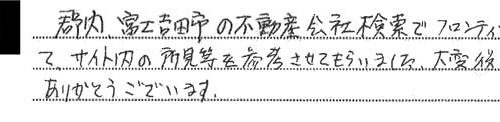 郡内、富士吉田市の不動産会社検索でフロンティ
て、サイト内の所見等を参考させてもらいました、大変
ありがとうございます。